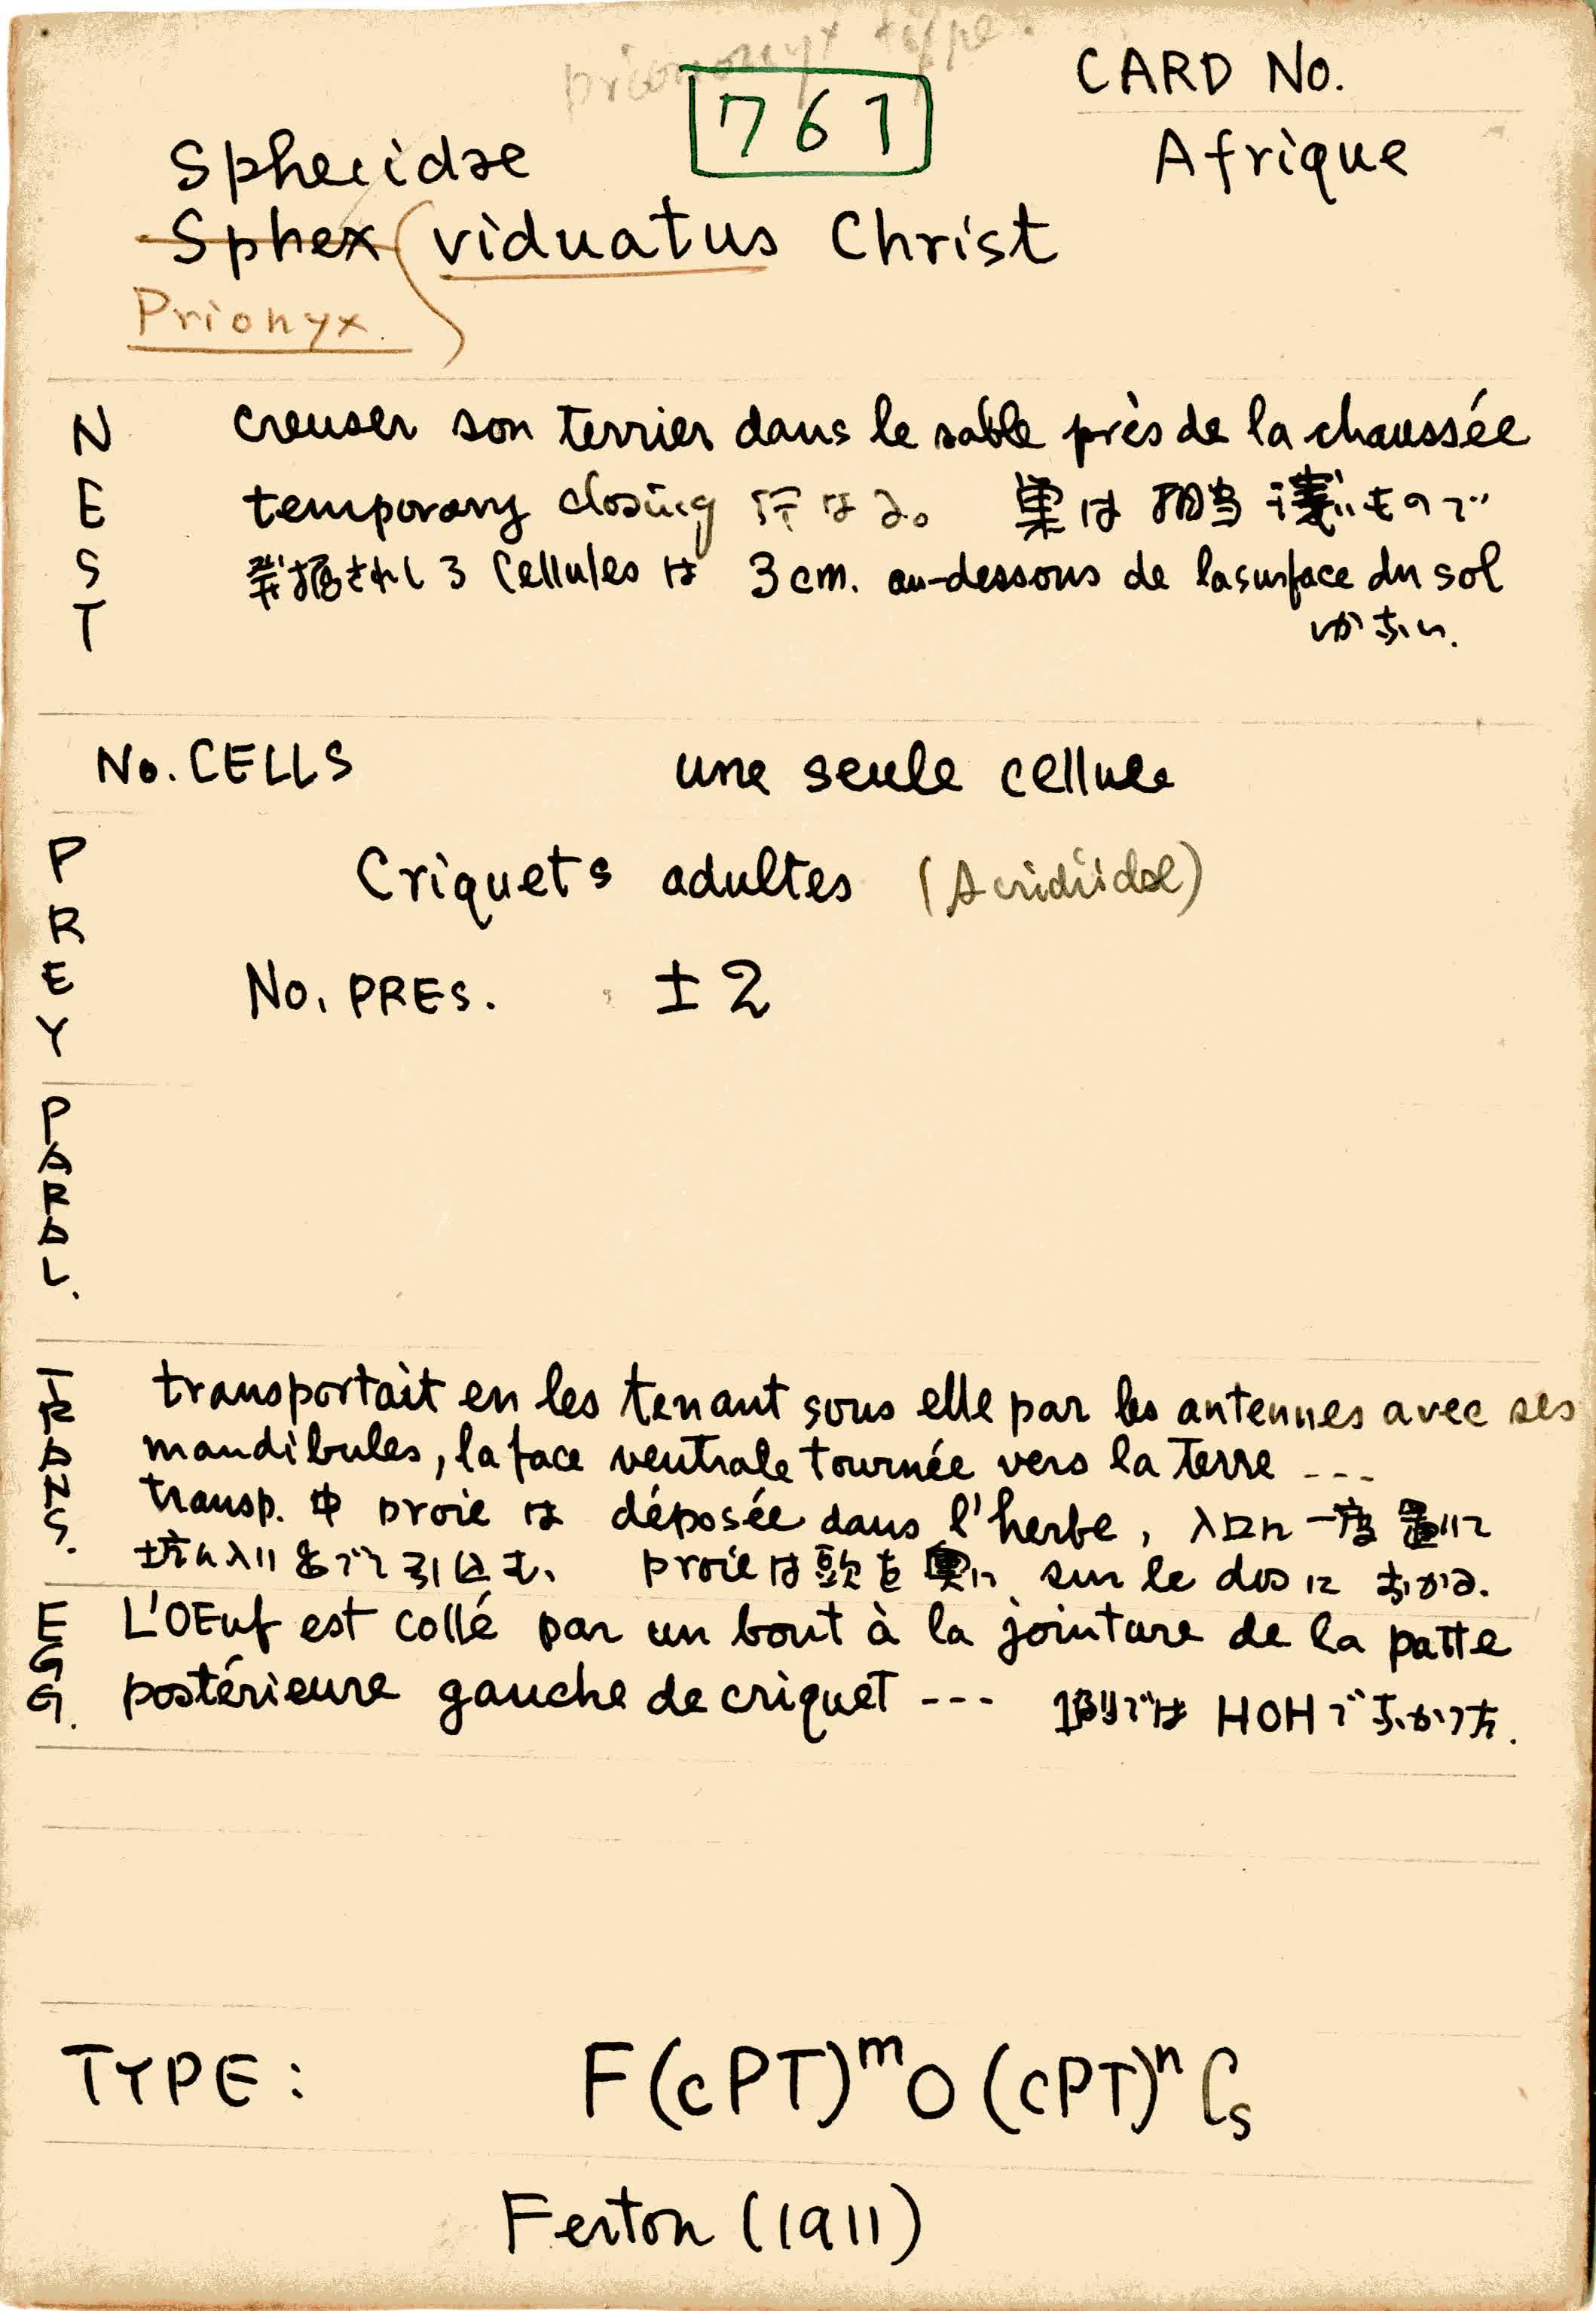 type.
CARD No.
761
Sphecidae
Afrique
Sphex (viduatus Christ
Prionyx.)
NEST
creuser son terrier dans le sable près de la chaussée
temporary closing 行はる。 巣は相当浅いもので
発掘されし3 cellules は 3cm. au-dessous de la surface du sol
No. CELLS une seule cellule
PREY
Criquets adultes (Acridiidae)
No. PRES. ±2
PARAL.
TRANS.
transportait en les tenant sous elle par les antennes avec ses
mandibules, la face ventrale tournée vers la terre ---
transp. 中 proie は déposée dans l'herbe, 入口に一度置いて
坑に入り 引込む、 proieは頭を奥に sur le dos に おかる.
EGG.
L'OEuf est collé par un bout à la jointure de la patte
postérieure gauche de criquet --- 1例では HOH で
TYPE: F(cPT)ᵐO(cPT)ⁿCs
Ferton (1911)